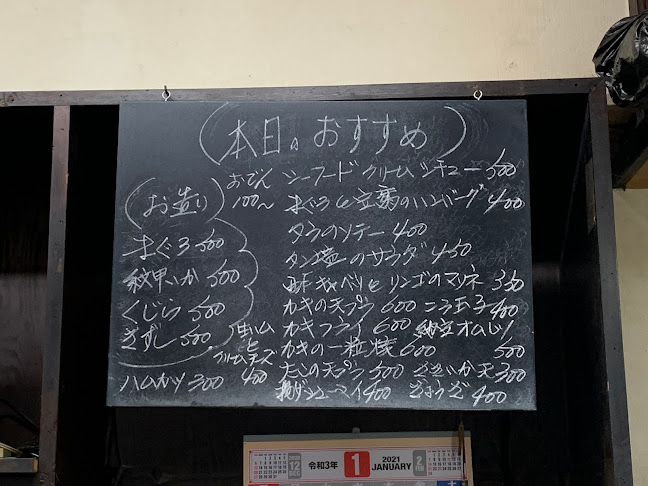 本日のおすすめ
お造り
まぐろ 500
紋甲いか 500
くじら 500
きずし 500
ハムカツ 300
おでん 100〜
生ハムとクリームチーズ 400
シーフードクリームシチュー 500
まぐろと豆腐のハンバーグ 400
タラのソテー 400
タン塩のサラダ 450
酢キャベツとリンゴのマリネ 350
カキの天プラ 600 ニラ玉子 400
カキフライ 600 納豆オムレツ 500
カキの一粒焼 600
たこの天プラ 500 さきいか天 300
揚げシューマイ 400 ぎょうざ 400
12
令和3年 1 2021 JANUARY 2